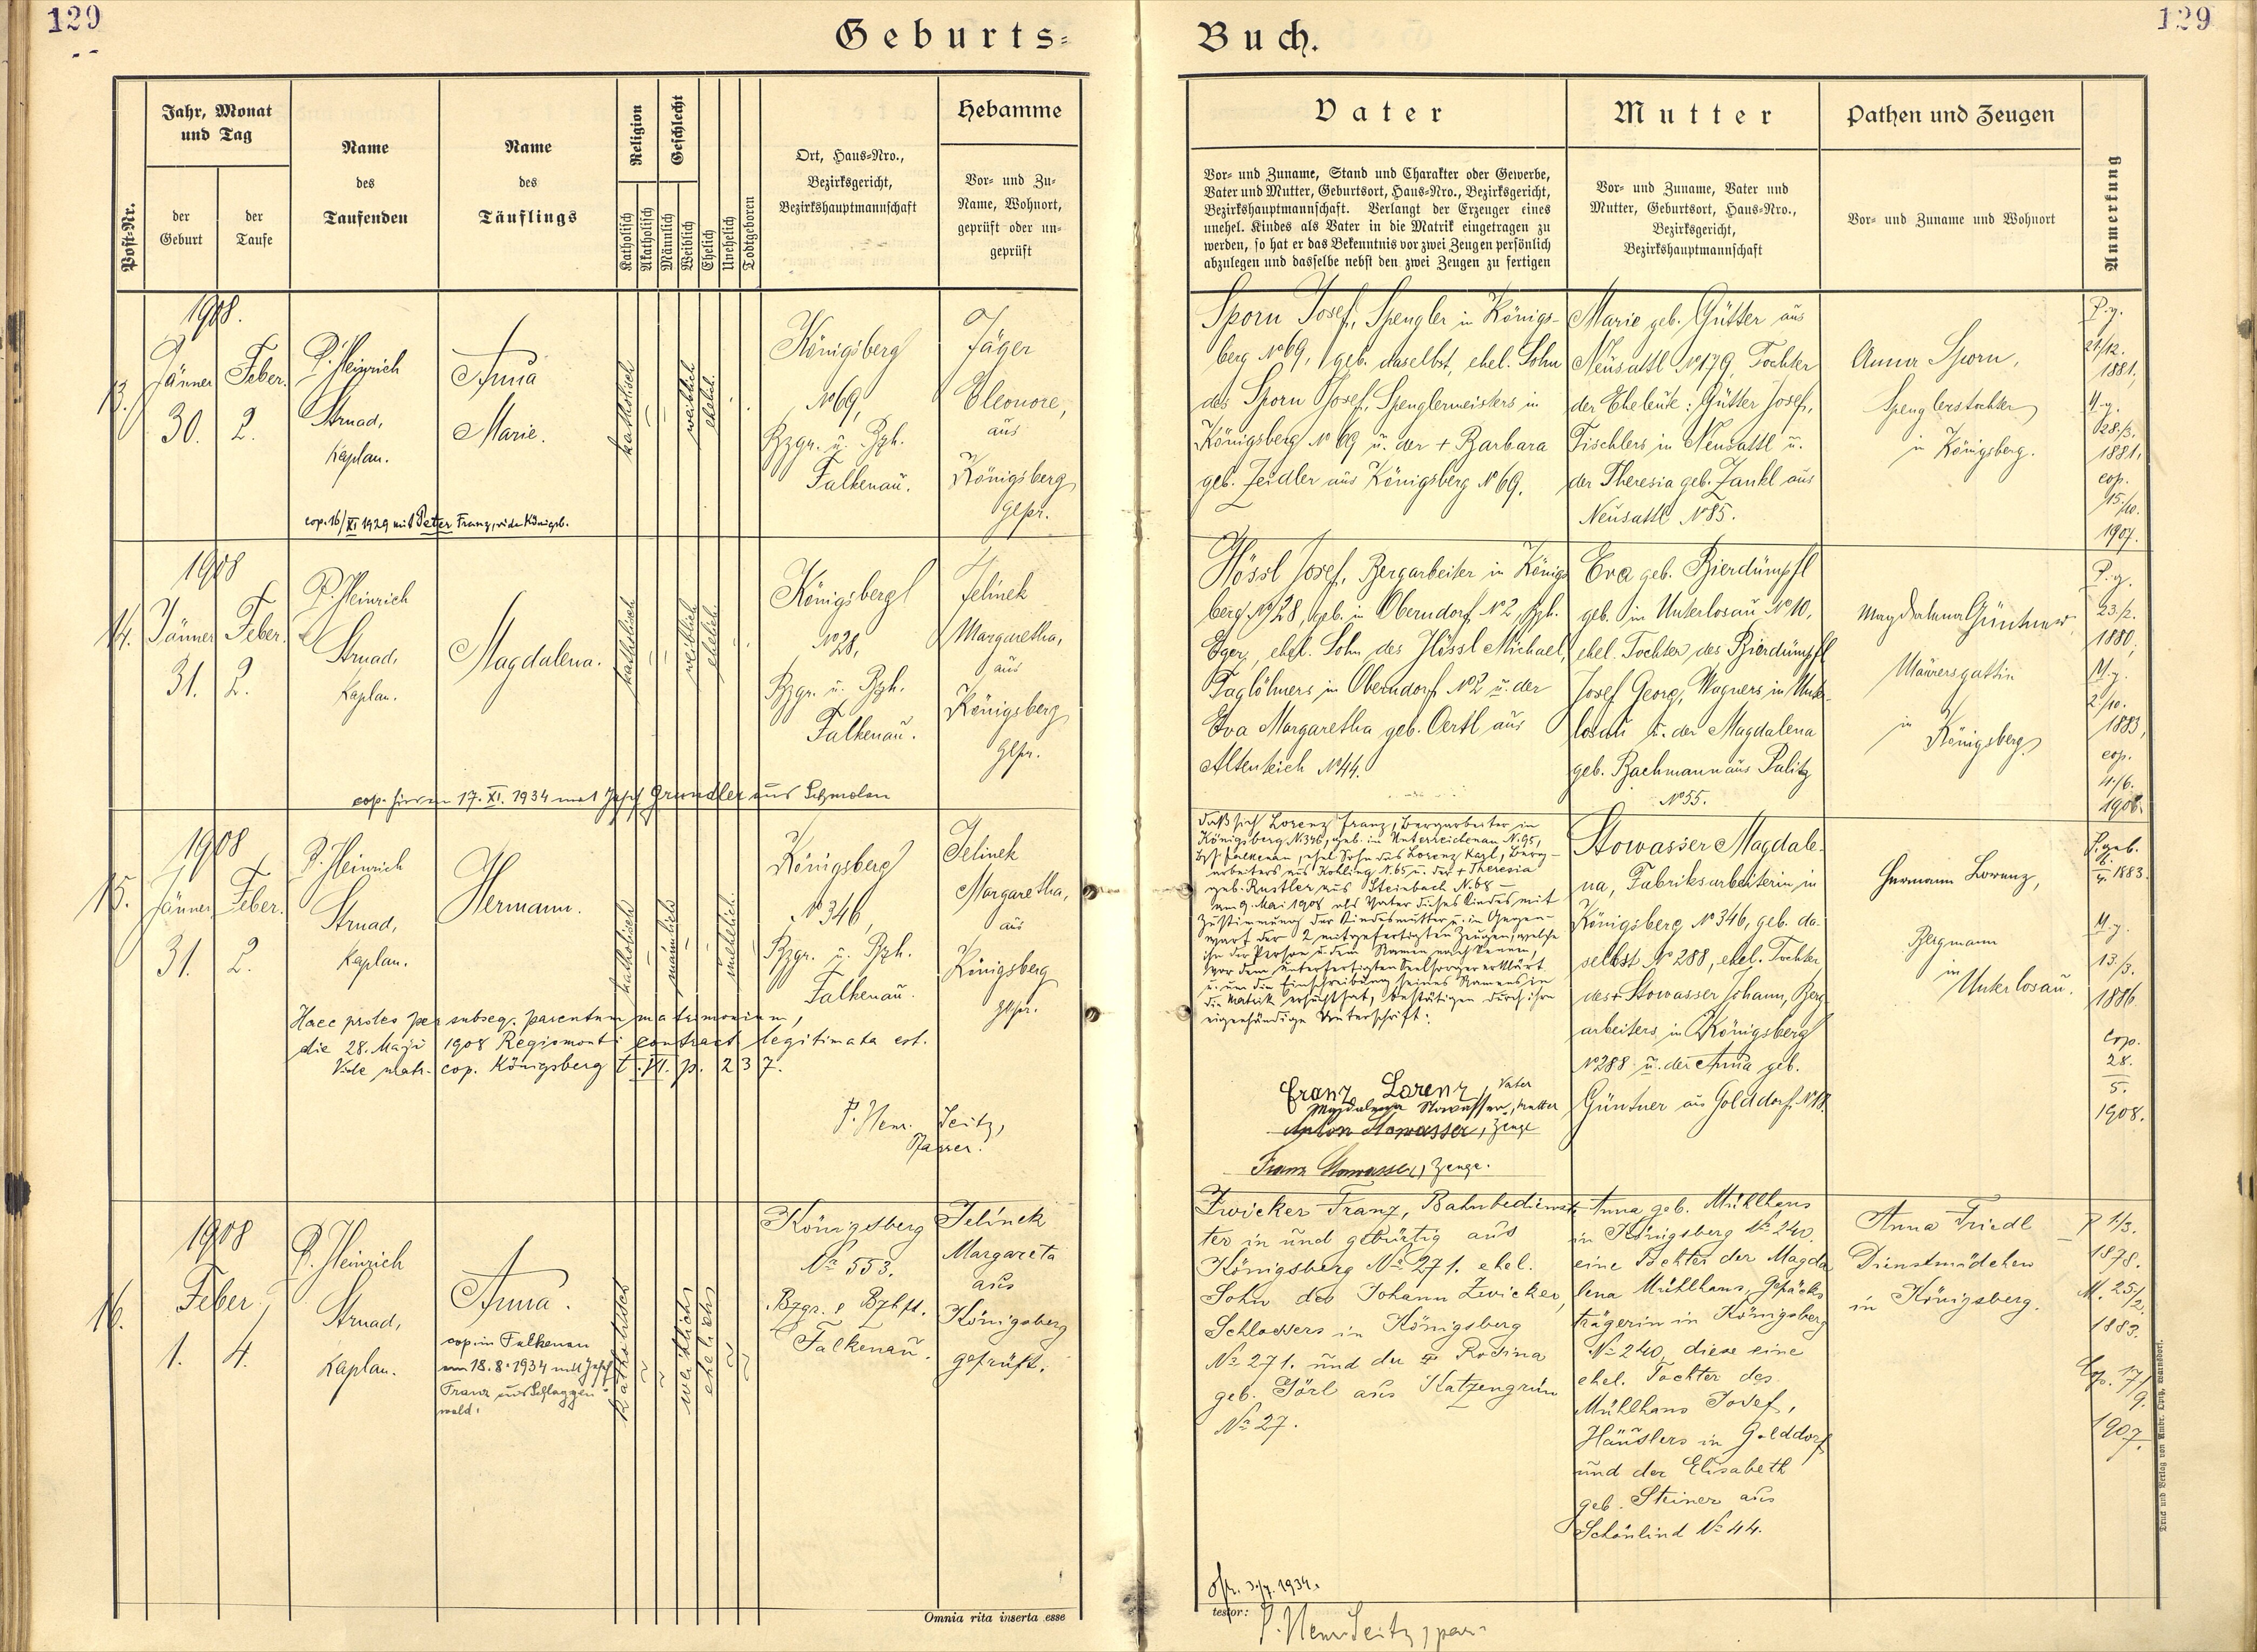 129
129
Geburts-
Buch.
Post-Nr.
Jahr, Monat
und Tag
der
Geburt
der
Taufe
Name
des
Taufenden
Name
des
Täuflings
Religion
Katholisch
Akatholisch
Geschlecht
Männlich
Weiblich
Ehelich
Unehelich
Todtgeboren
Ort, Haus-Nro.,
Bezirksgericht,
Bezirkshauptmannschaft
Hebamme
Vor- und Zu-
Name, Wohnort,
geprüft oder un-
geprüft
Vater
Vor- und Zuname, Stand und Charakter oder Gewerbe,
Vater und Mutter, Geburtsort, Haus-Nro., Bezirksgericht,
Bezirkshauptmannschaft. Verlangt der Erzeuger eines
unehel. Kindes als Vater in die Matrik eingetragen zu
werden, so hat er das Bekenntnis vor zwei Zeugen persönlich
abzulegen und dasselbe nebst den zwei Zeugen zu fertigen
Mutter
Vor- und Zuname, Vater und
Mutter, Geburtsort, Haus-Nro.,
Bezirksgericht,
Bezirkshauptmannschaft
Pathen und Zeugen
Vor- und Zuname und Wohnort
Anmerkung
13.
1908.
Jänner
30.
Feber.
2.
P. Heinrich
Strnad,
Kaplan.
Anna
Marie.
katholisch
weiblich
ehelich.
Königsberg
No 69,
Bzgr. u. Bzh.
Falkenau.
Jäger
Eleonore,
aus
Königsberg
gepr.
cop. 16/XI 1929 mit Petter Franz, vide Königsb.
Sporn Josef, Spengler in Königs-
berg No 69, geb. daselbst, ehel. Sohn
des Sporn Josef, Spenglermeisters in
Königsberg No 69 u. der + Barbara
geb. Zeidler aus Königsberg No 69.
Marie geb. Gütter aus
Neusattl No 179, Tochter
der Eheleute: Gütter Josef,
Tischlers in Neusattl u.
der Theresia geb. Zankl aus
Neusattl No 85.
Anna Sporn,
Spenglerstochter
in Königsberg.
P. g.
21/12.
1881,
M. g.
28/3.
1881,
cop.
15/10.
1907.
14.
1908
Jänner
31.
Feber.
2.
P. Heinrich
Strnad,
Kaplan.
Magdalena.
katholisch
weiblich
ehelich.
Königsberg
No 28,
Bzgr. u. Bzh.
Falkenau.
Jelinek
Margaretha,
aus
Königsberg
gepr.
cop. hier am 17. XI. 1934 mit Josef Grundler aus Schmolen
Hössl Josef, Bergarbeiter in Königs-
berg No 28, geb. in Oberndorf No 2, Bzh.
Eger, ehel. Sohn des Hössl Michael,
Taglöhners in Oberndorf No 2 u. der
Eva Margaretha geb. Oertl aus
Altenteich No 44.
Eva geb. Bierdümpfl
geb. in Unterlosau No 10,
ehel. Tochter des Bierdümpfl
Josef Georg, Wagners in Unter-
losau u. der Magdalena
geb. Bachmann aus Palitz
No 55.
Magdalena Güntner
Maurersgattin
in
Königsberg
P. g.
23/2.
1880,
M. g.
2/10.
1883,
cop.
4/6.
1906.
15.
1908
Jänner
31.
Feber.
2.
P. Heinrich
Strnad,
Kaplan.
Hermann.
katholisch
männlich
unehelich.
Königsberg
No 346,
Bzgr. u. Bzh.
Falkenau.
Jelinek
Margaretha,
aus
Königsberg
gepr.
Haec proles per subseq. parentum matrimonium,
die 28. Maji 1908 Regiomonti contract legitimata est.
Vide matr. cop. Königsberg t. VI. p. 237.
P. Henr. Seitz,
Pfarrer.
Daß sich Lorenz Franz, Bergarbeiter in
Königsberg N. 346, geb. in Unterreichenau N. 95,
Bzh. Falkenau, ehel. Sohn des Lorenz Karl, Berg-
arbeiters aus Kohling N. 65 u. der + Theresia
geb. Rustler aus Steinbach N. 68 –
am 9. Mai 1908 als Vater dieses Kindes mit
Zustimmung der Kindesmutter u. in Gegen-
wart der 2 mitgefertigten Zeugen, welche
ihn der Person u. dem Namen nach kennen,
vor dem unterfertigten Seelsorger erklärt
u. um die Einschreibung seines Namens in
die Matrik ersucht hat, bestätigen durch ihre
eigenhändige Unterschrift:
Franz Lorenz, Vater
Magdalena Stowasser, Mutter
Anton Stowasser, Zeuge
Franz Stowasser, Zeuge.
Stowasser Magdale-
na, Fabriksarbeiterin in
Königsberg No 346, geb. da-
selbst No 288, ehel. Tochter
des + Stowasser Johann, Berg-
arbeiters in Königsberg
No 288 u. der Anna geb.
Güntner aus Golddorf No 18.
Hermann Lorenz,
Bergmann
in
Unterlosau.
P. geb.
1883.
M. g.
13/3.
1886.
cop.
28.
5.
1908.
16.
1908
Feber
1.
4.
P. Heinrich
Strnad,
Kaplan.
Anna.
cop. in Falkenau
am 18.8.1934 mit Josef
Franz aus Schlaggen-
wald.
katholisch
weiblich
ehelich
Königsberg
No 553.
Bzgr. & Bzhft.
Falkenau.
Jelinek
Margareta
aus
Königsberg
geprüft.
Zwicker Franz, Bahnbedienste-
ter in und gebürtig aus
Königsberg No 271. ehel.
Sohn des Johann Zwicker,
Schlossers in Königsberg
No 271. und der Rosina
geb. Görl aus Katzengrün
No 27.
Anna geb. Mühlhans
in Königsberg No 240.
eine Tochter der Magda-
lena Mühlhans, Gepäcks-
trägerin in Königsberg
No 240, diese eine
ehel. Tochter des
Mühlhans Josef,
Häuslers in Golddorf
und der Elisabeth
geb. Steiner aus
Schönlind No 44.
Anna Friedl
Dienstmädchen
in Königsberg.
P 1/3.
1878.
M. 25/2.
1883.
Cop. 17/9.
1907.
Omnia rita inserta esse
testor:
P. Henr. Seitz, par.
Druck und Verlag von Ambr. Opitz, Warnsdorf.